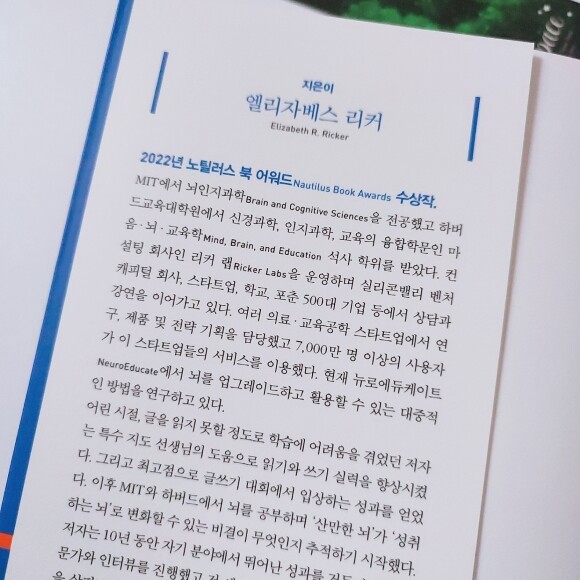 지은이
엘리자베스 리커
Elizabeth R. Ricker
2022년 노틸러스 북 어워드Nautilus Book Awards 수상작.
MIT에서 뇌인지과학Brain and Cognitive Sciences을 전공했고 하버
드교육대학원에서 신경과학, 인지과학, 교육의 융합학문인 마
음·뇌·교육학Mind, Brain, and Education 석사 학위를 받았다. 컨
설팅 회사인 리커 랩Ricker Labs을 운영하며 실리콘밸리 벤처
캐피털 회사, 스타트업, 학교, 포춘 500대 기업 등에서 상담과
강연을 이어가고 있다. 여러 의료·교육공학 스타트업에서 연
구, 제품 및 전략 기획을 담당했고 7,000만 명 이상의 사용자
가 이 스타트업들의 서비스를 이용했다. 현재 뉴로에듀케이트
NeuroEducate에서 뇌를 업그레이드하고 활용할 수 있는 대중적
인 방법을 연구하고 있다.
어린 시절, 글을 읽지 못할 정도로 학습에 어려움을 겪었던 저자
는 특수 지도 선생님의 도움으로 읽기와 쓰기 실력을 향상시켰
다. 그리고 최고점으로 글쓰기 대회에서 입상하는 성과를 얻었
다. 이후 MIT와 하버드에서 뇌를 공부하며 '산만한 뇌'가 '성취
하는 뇌'로 변화할 수 있는 비결이 무엇인지 추적하기 시작했다.
저자는 10년 동안 자기 분야에서 뛰어난 성과를
문가와 인터뷰를 진행했고